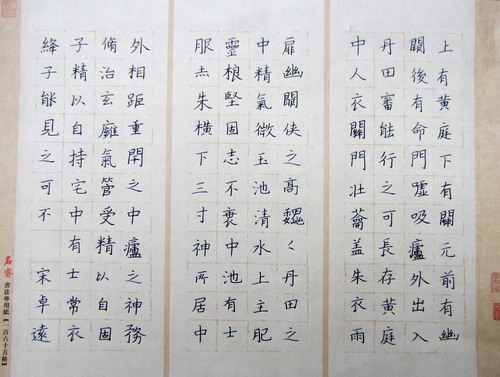 上有黄庭下有關元前有幽
闕後有命門噓吸廬外出入
丹田審能行之可長存黄庭
中人衣關門壮蘥盖朱衣雨
扉幽關侠之高魏々丹田之
中精氣微玉池清水上主肥
靈根堅固志不衰中池有士
服赤朱横下三寸神所居中
外相距重閇之中廬之神務
脩治玄廱氣管受精以自固
子精以自持宅中有士常衣
絳子能見之可不 宋卓遠
書法專用紙【一百六十五格】